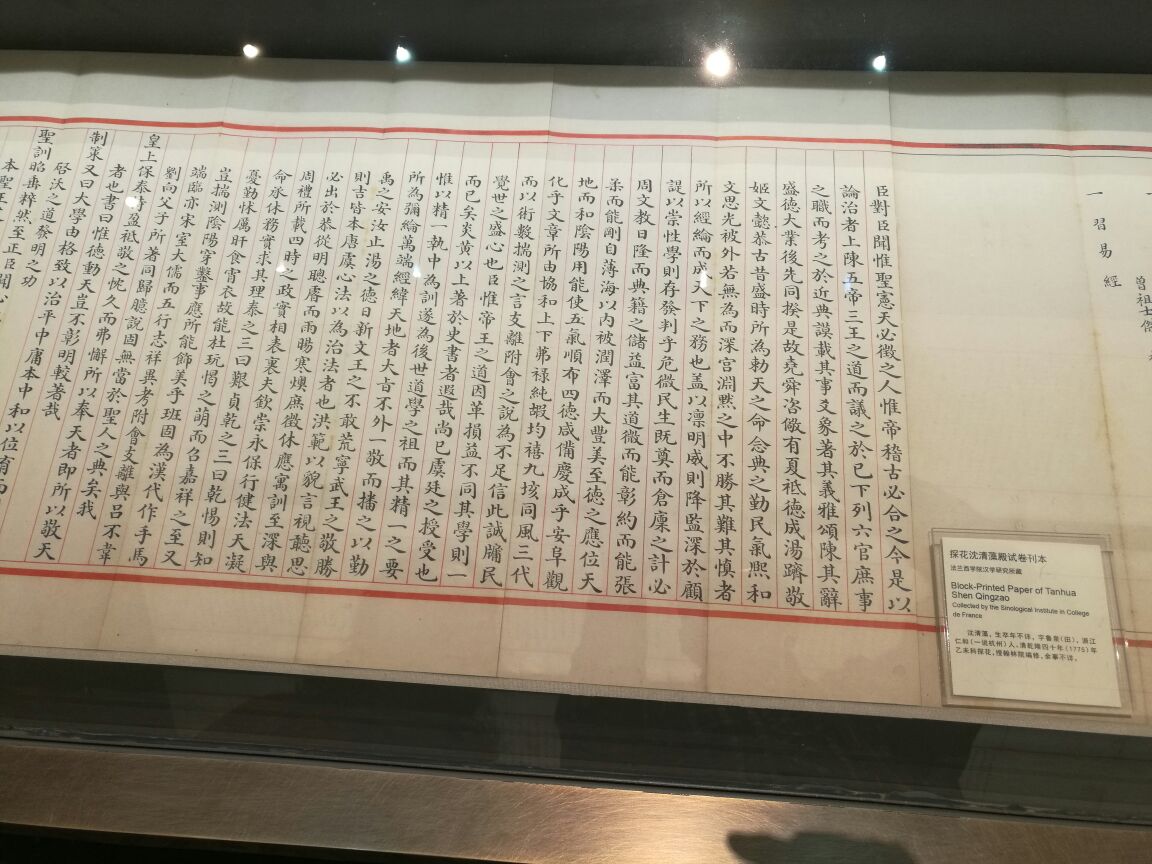 曾祖士傑
一習易經
臣對臣聞惟聖憲天必徵之人惟帝稽古必合之今是以
論治者上陳五帝三王之道而議之於已下列六官庶事
之職而考之於近典謨載其事爻彖著其義雅頌陳其辭
盛德大業後先同揆是故堯舜咨儆有夏祗德成湯躋敬
姬文懿恭古昔盛時所為勅天之命念典之勤民氣熙和
文思光被外若無為而深宮淵默之中不勝其難其慎者
所以經綸而成天下之務也盖以凛明威則降監深於顧
諟以崇性學則存發判乎危微民生既奠而倉廩之計必
周文教日隆而典籍之儲益富其道微而能彰約而能張
柔而能剛自薄海以內被潤澤而大豐美至德之應位天
地而和陰陽用能使五氣順布四德咸備慶成乎安阜觀
化乎文章所由協和上下茀祿純嘏均禧九垓同風三代
而以術數揣測之言支離附會之說為不足信此誠牖民
覺世之盛心也臣惟帝王之道因革損益不同其學則一
而已矣炎黃以上著於史書者遐哉尚已虞廷之授受也
惟以精一執中為訓遂為後世道學之祖而其精一之要
所為彌綸萬端經緯天地者大旨不外一敬而播之以勤
禹之安汝止湯之德日新文王之不敢荒寧武王之敬勝
則吉皆本唐虞心法以為治法者也洪範以貌言視聽思
必出於恭從明聰睿而雨暘寒燠庶徵休應寓訓至深與
周禮所載四時之政實相表裏夫欽崇永保行健法天凝
命承休務實求其理泰之三曰艱貞乾之三曰乾惕則知
憂勤怵厲旰食宵衣故能杜玩愒之萌而召嘉祥之至又
豈揣測陰陽穿鑿事應所能飾美乎班固為漢代作手馬
端臨亦宋室大儒而五行志祥異考附會支離與呂不韋
劉向父子所著同歸臆說固無當於聖人之典矣我
皇上保泰持盈祗敬之忱久而弗懈所以奉天者即所以敬天
者也書曰惟德動天豈不彰明較著哉
制策又曰大學由格致以治平中庸本中和以位育而
啓沃之道發明之功
聖訓昭垂粹然至正臣聞心
本聖王之
探花沈清藻殿试卷刊本
法兰西学院汉学研究所藏
Block-Printed Paper of Tanhua
Shen Qingzao
Collected by the Sinological Institute in College
de France
沈清藻，生卒年不详，字鲁泉（田），浙江
仁和（一说杭州）人。清乾隆四十年（1775）年
乙未科探花，授翰林院编修，余事不详。